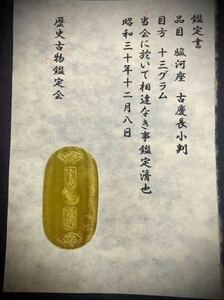 鑑定書
品目 駿河座 古慶長小判
目方 十三グラム
当会に於いて相違なき事鑑定済也
昭和三十年十二月八日
歴史古物鑑定会